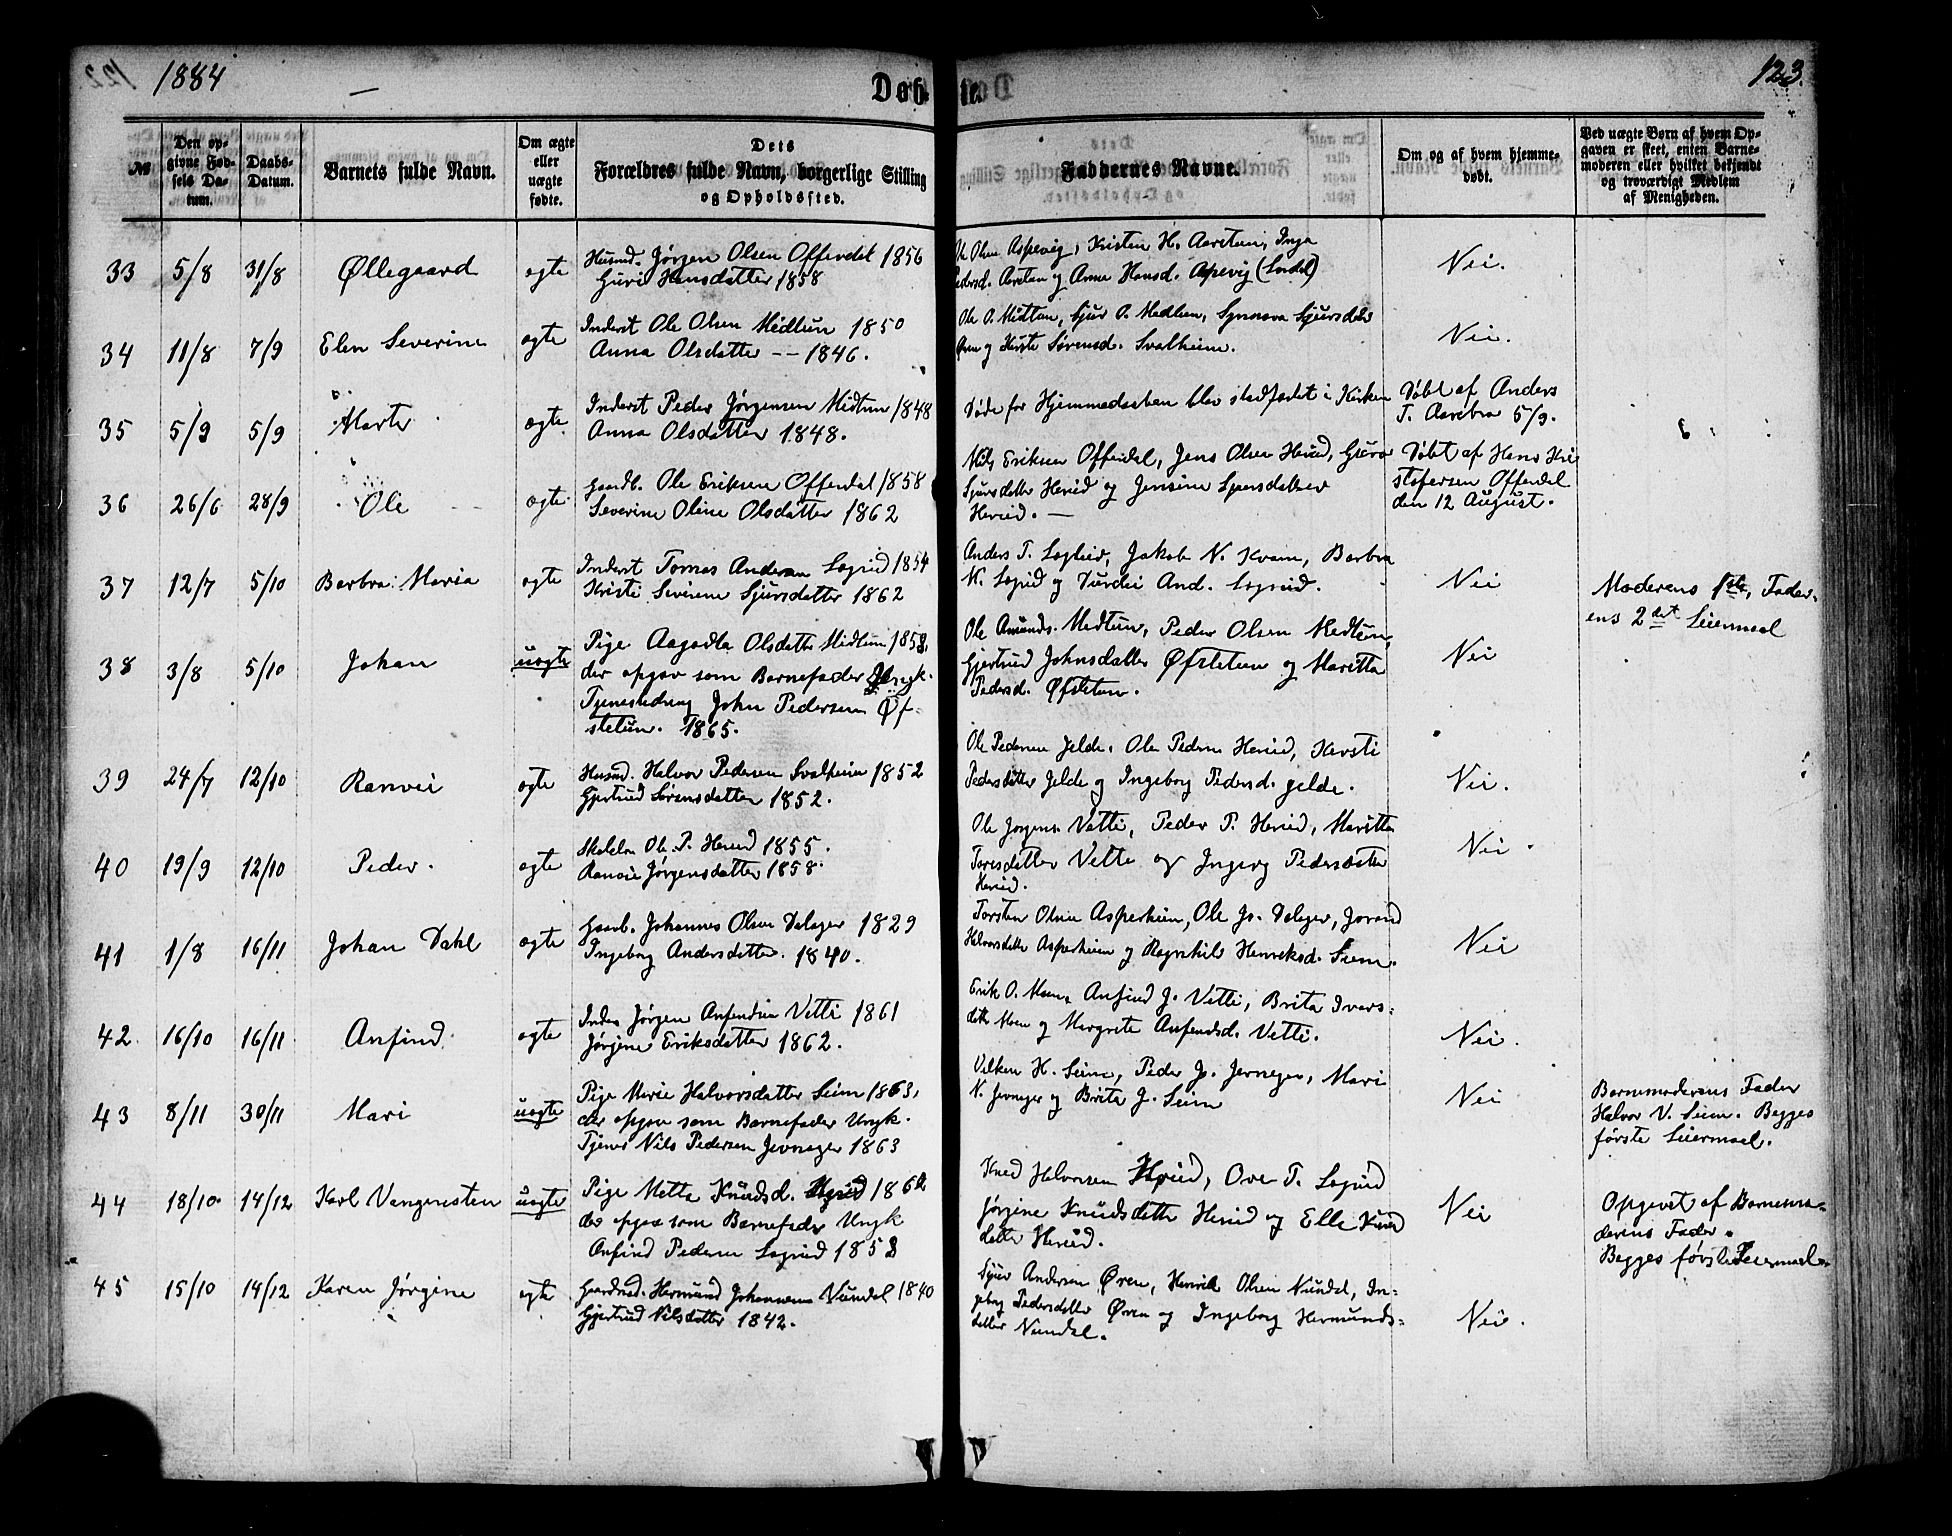 1884
Døb- te.
123.
№
Den op-
givne Fød-
sels Da-
tum.
Daabs-
Datum.
Barnets fulde Navn.
Om ægte
eller
uægte
fødte.
Dets
Forældres fulde Navn, borgerlige Stilling
og Opholdssted.
Faddernes Navne.
Om og af hvem hjemme-
døbt.
Ved uægte Børn af hvem Op-
gaven er skeet, enten Barne-
moderen eller hvilket bekjendt
og troværdigt Medlem
af Menigheden.
33 5/8 31/8 Øllegaard ægte
Husmd. Jørgen Olsen Offerdal 1856
Guri Hansdatter 1858
Ole Olsen Aspevig, Kristen H. Aaretun, Inga
Pedersd. Aaretun og Anna Hansd. Aspevig (Lærdal)
Nei.
34 11/8 7/9 Elen Severine ægte
Inderst Ole Olsen Midtun 1850
Anna Olsdatter -- 1846.
Ole O. Midtun, Sjur O. Medtun, Synneva Sjursdatter
Øren og Kirste Sørensd. Svalheim.
Nei.
35 5/9 5/9 Marte ægte
Inderst Peder Jørgensen Midtun 1848
Anna Olsdatter 1848.
Døde før Hjemmedaaben blev stadfæstet i Kirken
Døbt af Anders
T. Aarebro 5/9.
36 26/6 28/9 Ole ægte
Gaardb. Ole Eriksen Offerdal 1858
Severine Oline Olsdatter 1862
Nils Eriksen Offerdal, Jens Olsen Hereid, Guro
Sjursdatter Hereid og Jensine Jensdatter
Hereid. —
Døbt af Hans Kri
stofersen Offerdal
den 12 August.
37 12/7 5/10 Barbra Maria ægte
Inderst Tomas Andersen Lægreid 1854
Kristi Severine Sjursdatter 1862
Anders T. Lægreid, Jakob N. Kvam, Barbra
N. Lægreid og Durdei And. Lægreid.
Nei
38 3/8 5/10 Johan uægte
Pige Aagodta Olsdatter Midtun 1858,
der opgav som Barnefader Ungk.
Tjenestedreng John Pedersen Øf-
stetun. 1865.
Ole Amunds. Medtun, Peder Olsen Medtun,
Gjertrud Johnsdatter Øfstetun og Maritta
Pedersd. Øfstetun.
Nei
Moderens 1ste, Fader-
ens 2det Leiermaal
39 24/7 12/10 Ranvei ægte
Husmd. Halvor Pedersen Svalheim 1852
Gjertrud Sørensdatter 1852.
Ole Pedersen Jelde, Ole Peders. Hereid, Kersti
Pedersdatter Jelde og Ingeborg Pedersd. Jelde.
Nei.
40 19/9 12/10 Peder. ægte
Skolelr. Ole P. Hereid 1855.
Ranvei Jørgensdatter 1858.
Ole Jørgens. Vetti, Peder P. Hereid, Maritta
Toresdatter Vette og Ingeborg Pedersdatter
Hereid.
Nei.
41 1/8 16/11 Johan Dahl ægte
Gaardb. Johannes Olsen Dalager 1829
Ingeborg Andersdatter. 1840.
Torsten Olsen Asperheim, Ole Jo. Dalager, Jorand
Halvorsdatter Asperheim og Ragnhild Henriksd. Seim.
Nei
42 16/10 16/11 Anfind ægte
Inders Jørgen Anfendsen Vetti 1861
Jørgine Eriksdatter 1862.
Erik O. Moen, Anfind J. Vetti, Brita Ivers-
datt. Moen og Margrete Anfendsd. Vetti.
Nei.
43 8/11 30/11 Mari uægte
Pige Marie Halvorsdatter Seim 1863,
der opgav som Barnefader Ungk.
Tjener Nils Pedersen Jevnager 1863
Vilken H. Seim, Peder Jo. Jevnager, Mari
N. Jevnager og Brita J. Seim
Nei
Barnemoderens Fader
Halvor V. Seim. Begges
første Leiermaal.
44 18/10 14/12 Karl Vangnesten uægte
Pige Metta Knudsd. Hereid 1862
der opgav som Barnefader Ungk
Anfind Pedersen Lægreid 1858
Knud Halvorsen Hereid, Ove T. Lægreid
Jørgine Knudsdatter Hereid og Elle Knuds
datter Hereid.
Nei
Opgivet af Barnemo-
derens Fader.
Begges første Leiermaal.
45 15/10 14/12 Karen Jørgine ægte
Gaardmd. Hermund Johannesen Nundal 1840
Gjertrud Nilsdatter 1842.
Sjur Andersen Øren, Henrik Olsen Nundal, In-
geborg Pedersdatter Øren og Ingeborg Hermunds-
datter Nundal.
Nei.